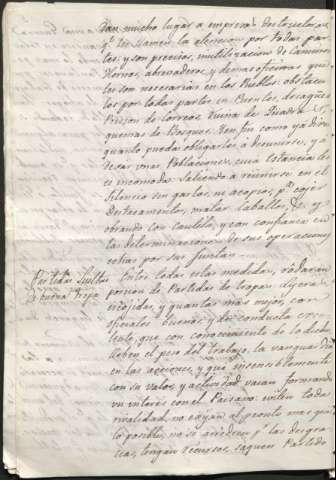 Dan mucho lugar a empresas
qe les llamen la atencion por todas par-
tes, y son precisos, inutilizacion de caminos
Hornos, abrevaderos, y demas oficinas que
les son necesarias en los Pueblos obstacu-
los por todas partes en Puentes, desagues
Prision de correos, Ruina de
quemas de Bosques. En fin como ya dixe
quanto pueda obligarlos à reunirse, y à
Poblaciones, cuia estancia les
es incomoda. Saliendo à reunirse en el
silencio sin
destacamentos, matar caballos &c y
obrando con cautela, y con confianza en
las determinaciones de sus operaciones
por sus Juntas.
Partidas Sueltas
de buena tropa
Entre todas estas medidas,
porcion de Partidas de tropas ligeras
escojidas, y quantas mas mejor con
oficiales buenos, y de conducta
que con conocimiento de la
lleven el peso del trabajo, la vanguardia
en las acciones, y que insensiblemente
con su valor y actividad vaian formando
un interes con el Paisano: eviten toda
rivalidad, no exijan al pronto mas que
lo posible, no se arredren pr las desgra-
cias, tengan recursos, saquen Partido